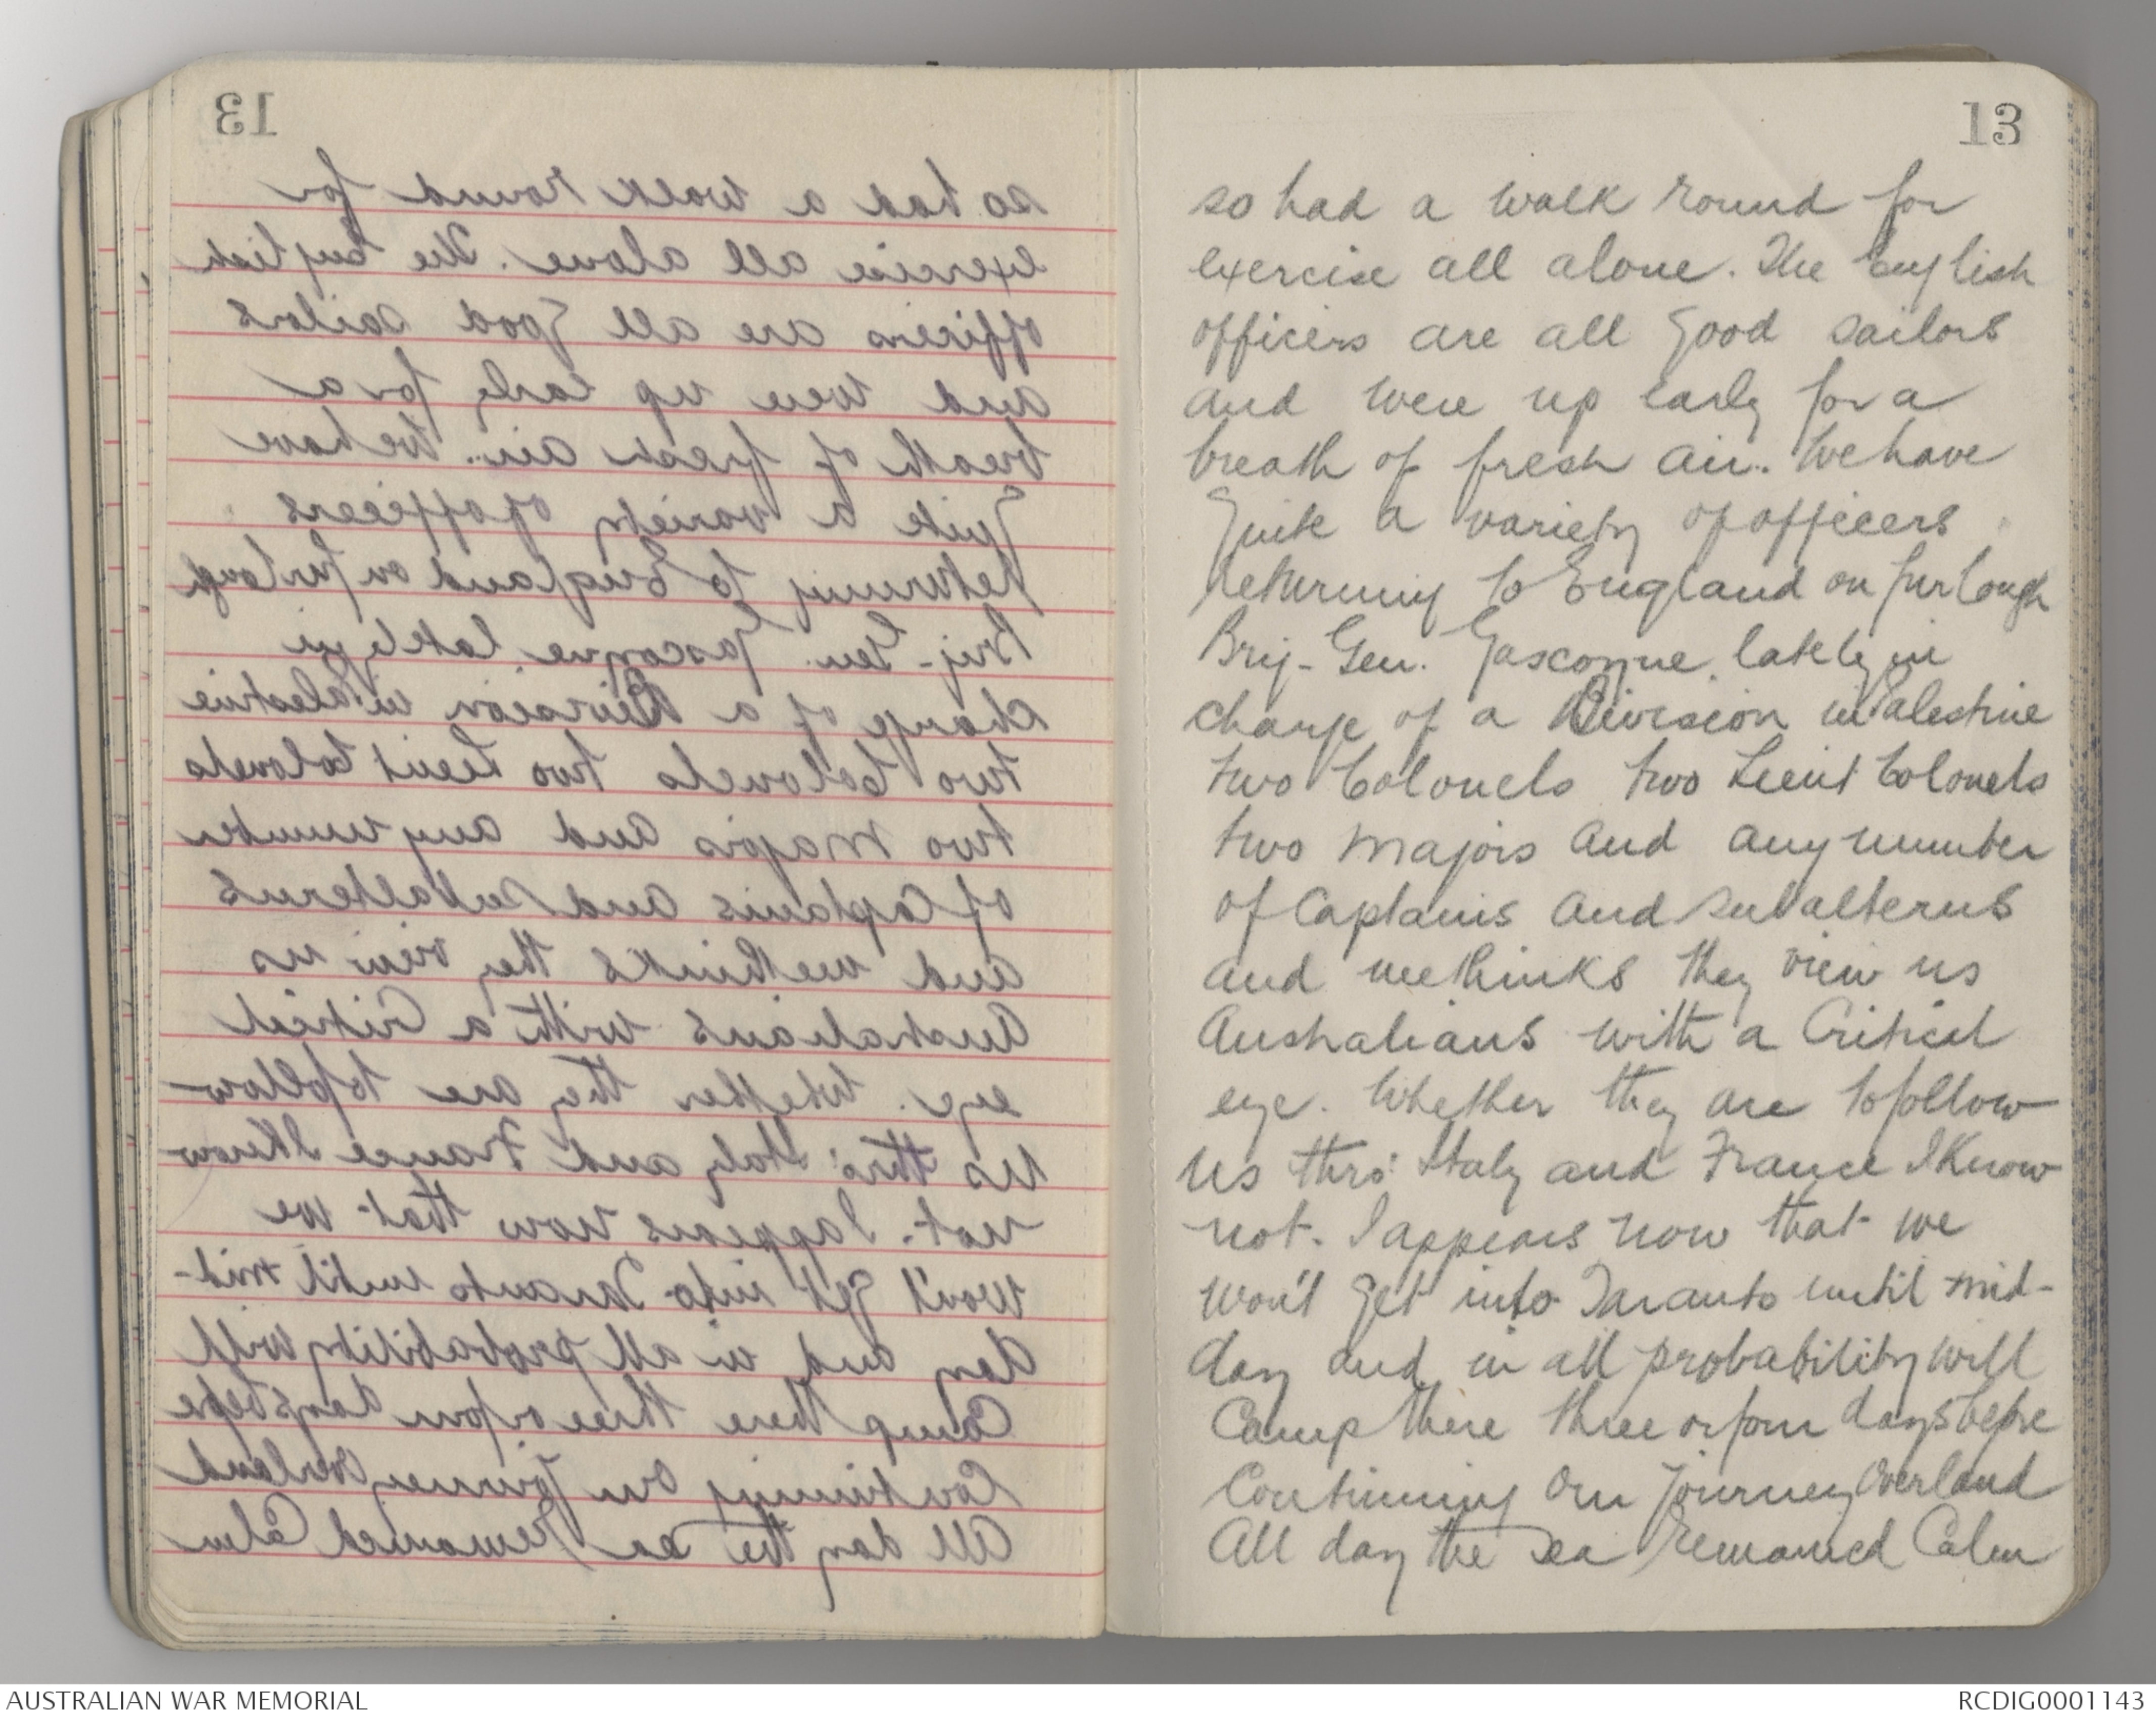 13
so had a walk round for
exercise all alone. The English
officers are all good sailors
and were up early for a
breath of fresh air. We have
Quite a variety of officers
returning to England on furlough
Brig-Gen. Gascoyne lately in
charge of a Division in Palestine
two Colonels two Lieut Colonels
two Majors and any number
of Captains and subalterns
and methinks they view us
Australians with a Critical
eye. Whether they are to follow
us thro' Italy and France I know
not. I appears now that we
won't get into Taranto until mid-
day and in all probability will
Camp there three or four days before
Continuing our journey overland
All day the sea remained Calm
AUSTRALIAN WAR MEMORIAL
RCDIG0001143